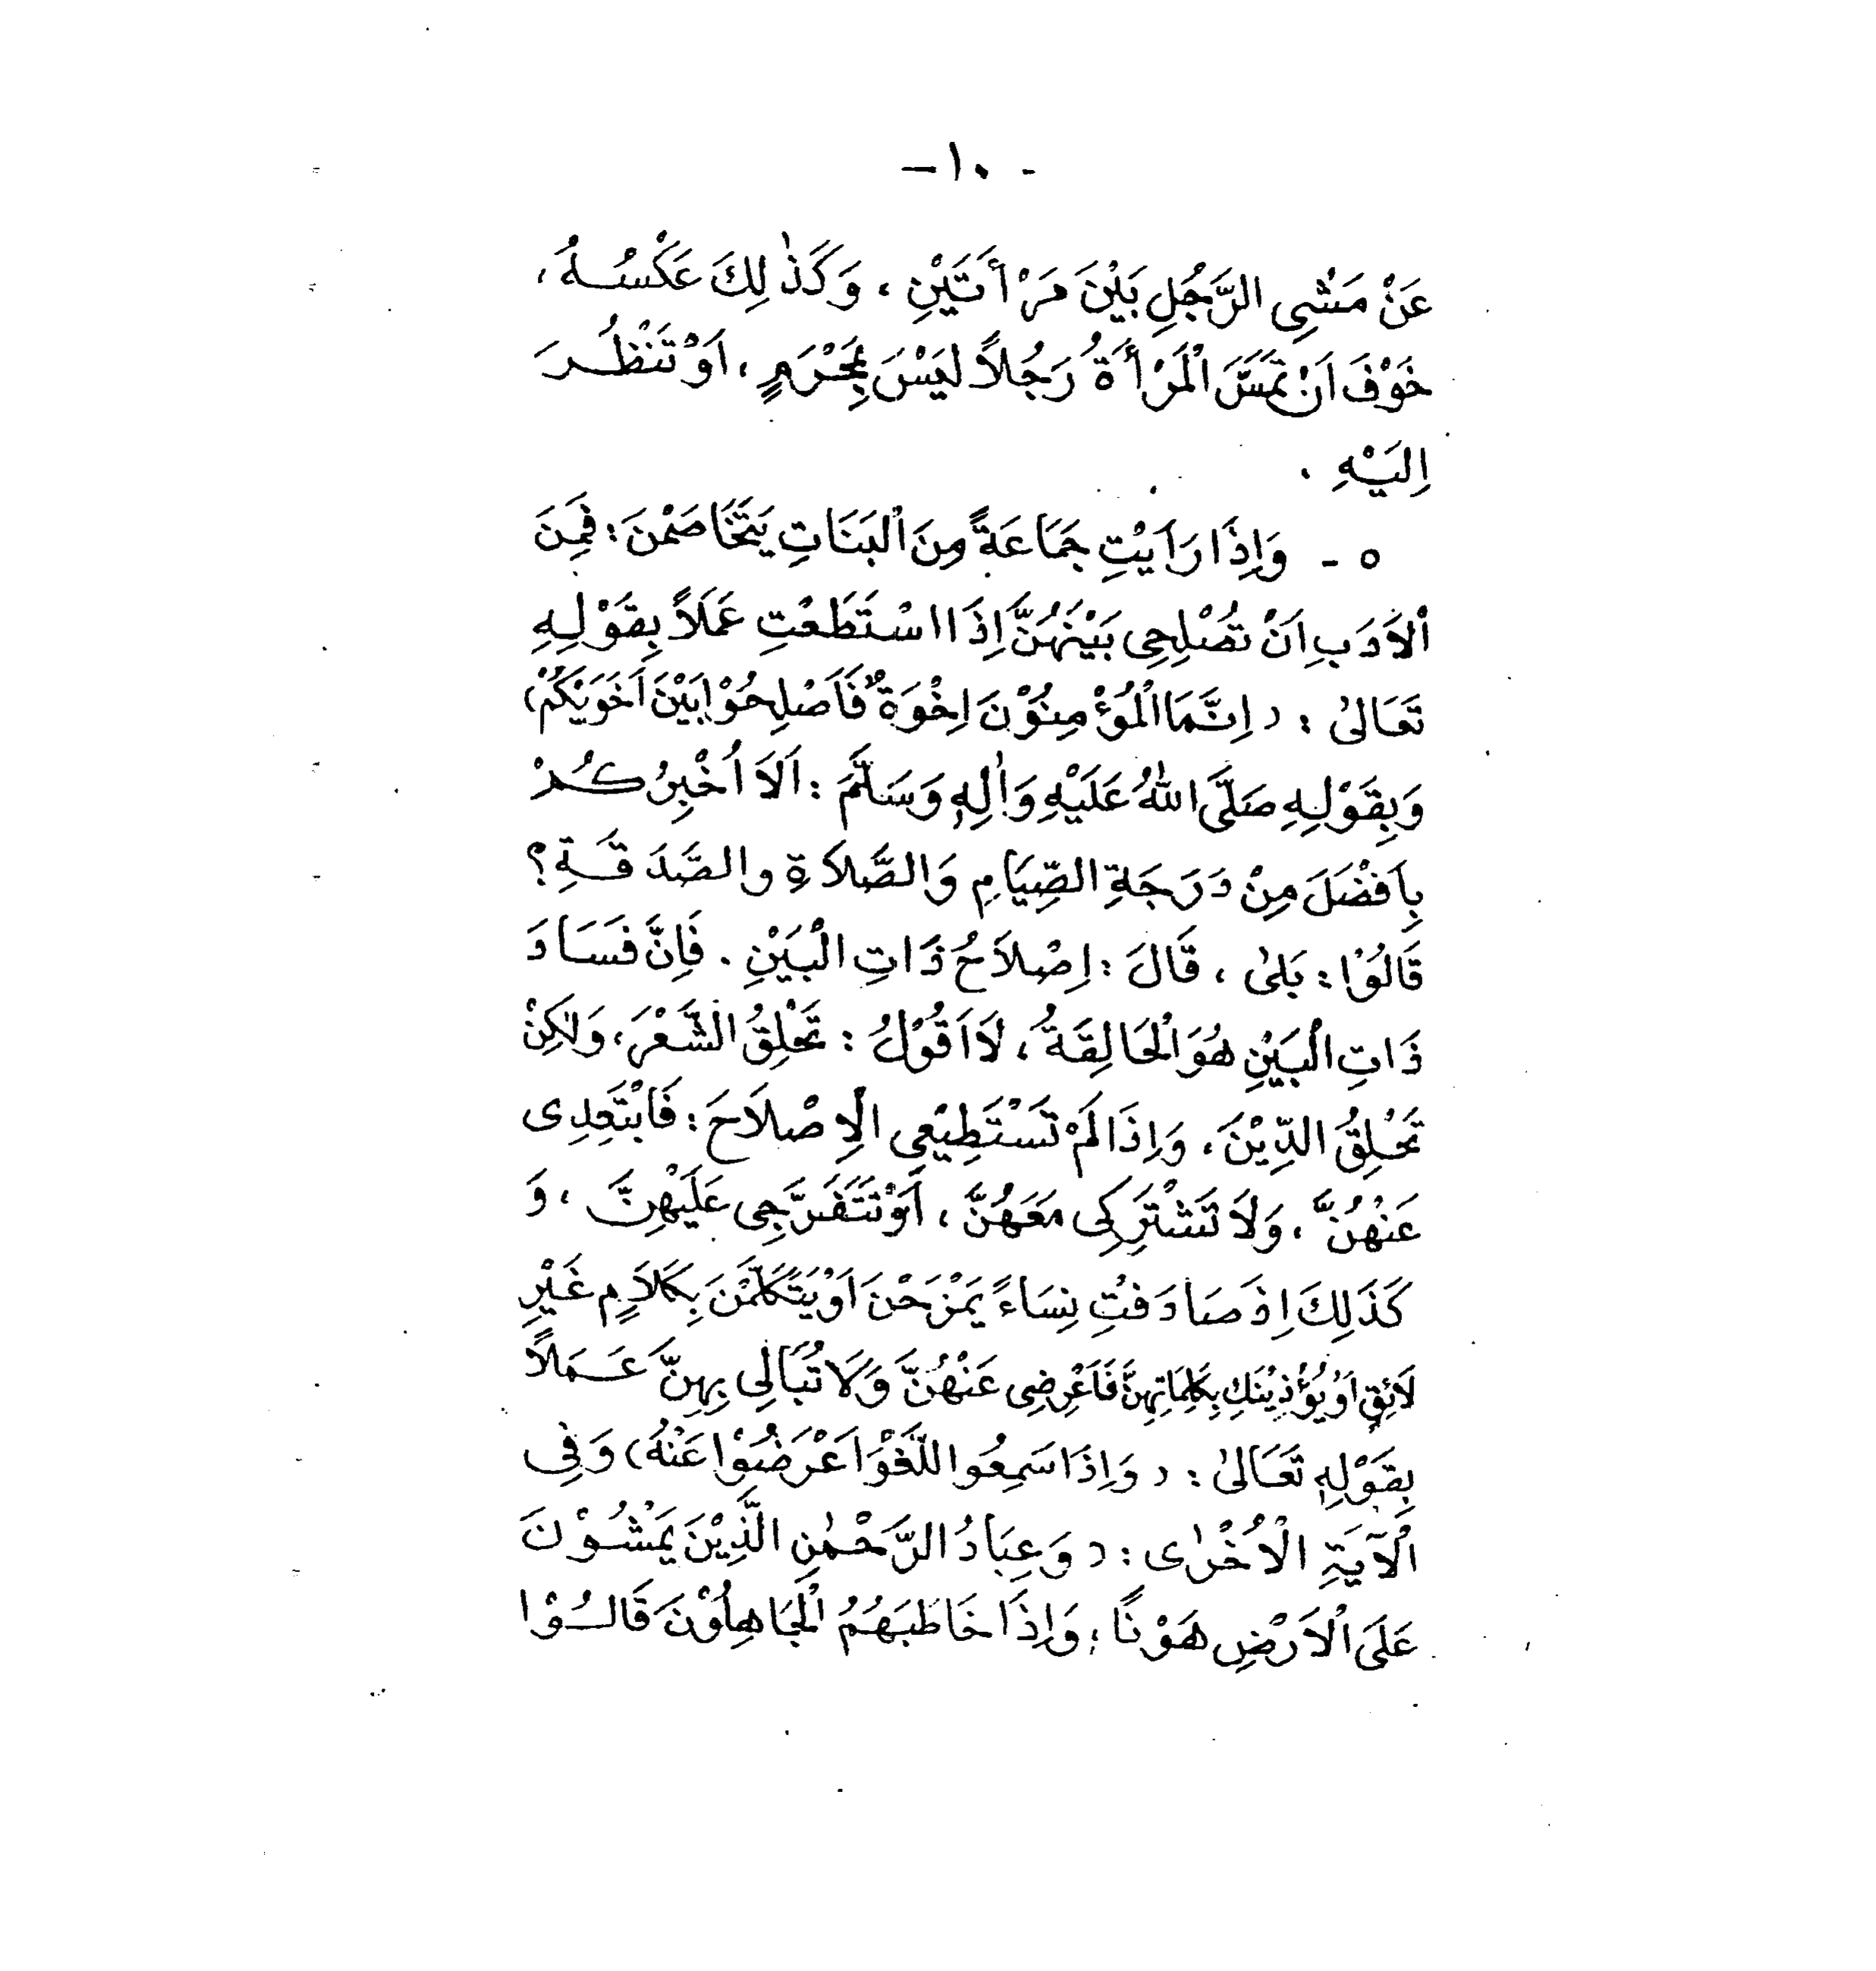 - ١٠ -
عَنْ مَشْىِ الرَّجُلِ بَيْنَ مَرْأَتَيْنِ ، وَكَذٰلِكَ عَكْسُهُ ،
خَوْفَ اَنْ تَمَسَّ الْمَرْأَةُ رَجُلاً لَيْسَ بِمَحْرَمٍ ، اَوْ تَنْظُرَ
اِلَيْهِ .
٥ - وَاِذَا رَاَيْتِ جَمَاعَةً مِنَ الْبَنَاتِ يَتَخَاصَمْنَ : فَمِنَ
اْلاَدَبِ اَنْ تُصْلِحِى بَيْنَهُنَّ اِذَا اسْتَطَعْتِ عَمَلاً بِقَوْلِهِ
تَعَالىٰ : ( اِنَّمَا الْمُؤْمِنُوْنَ اِخْوَةٌ فَاَصْلِحُوْا بَيْنَ اَخَوَيْكُمْ )
وَبِقَوْلِهِ صَلَّى اللهُ عَلَيْهِ وَاٰلِهِ وَسَلَّمَ : اَلاَ اُخْبِرُكُمْ
بِاَفْضَلَ مِنْ دَرَجَةِ الصِّيَامِ وَالصَّلاَةِ والصَّدَقَةِ ؟
قَالُوْا : بَلىٰ ، قَالَ : اِصْلاَحُ ذَاتِ الْبَيْنِ . فَاِنَّ فَسَادَ
ذَاتِ الْبَيْنِ هُوَ الْحَالِقَةُ ، لاَ اَقُوْلُ : تَحْلِقُ الشَّعْرَ ، وَلٰكِنْ
تَحْلِقُ الدِّيْنَ ، وَاِذَا لَمْ تَسْتَطِيْعِى الْاِصْلاَحَ : فَابْتَعِدِى
عَنْهُنَّ ، وَلاَ تَشْتَرِكِى مَعَهُنَّ ، اَوْ تَتَفَرَّجِى عَلَيْهِنَّ ، وَ
كَذَلِكَ اِذَ صَادَفْتِ نِسَاءً يَمْزَحْنَ اَوْ يَتَكَلَّمْنَ بِكَلاَمٍ غَيْرِ
لاَئِقٍ اَوْ يُؤْذِيْنَكِ بِكَلِمَاتِهِنَّ فَاَعْرِضِى عَنْهُنَّ وَلاَ تُبَالِى بِهِنَّ عَمَلاً
بِقَوْلِهِ تَعَالىٰ : ( وَاِذَا سَمِعُوا اللَّغْوَ اَعْرَضُوْا عَنْهُ ) وَفِى
اْلآيَةِ الْاُخْرٰى : ( وَعِبَادُ الرَّحْمٰنِ الَّذِيْنَ يَمْشُوْنَ
عَلَى اْلاَرْضِ هَوْنًا ، وَاِذَا خَاطَبَهُمُ الْجَاهِلُوْنَ قَالُوْا